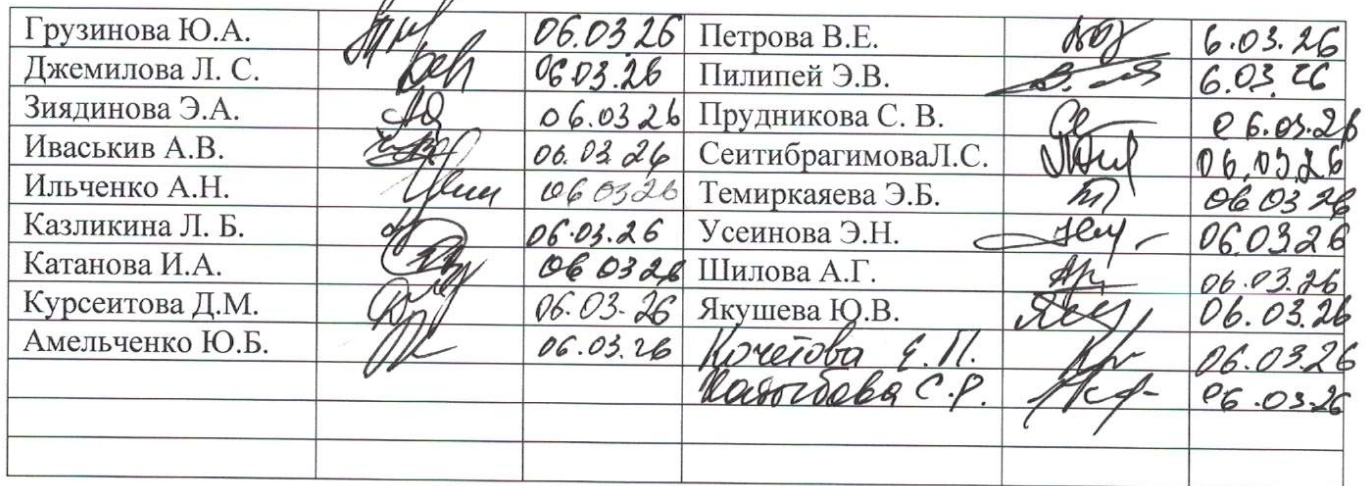 Грузинова Ю.А. 06.03.26 Петрова В.Е. 6.03.26
Джемилова Л. С. 06.03.26 Пилипей Э.В. 6.03.26
Зиядинова Э.А. 06.03.26 Прудникова С. В. 06.03.26
Иваськив А.В. 06.03.26 СеитибрагимоваЛ.С. 06.03.26
Ильченко А.Н. 06 03 26 Темиркаяева Э.Б. 06 03 26
Казликина Л. Б. 06.03.26 Усеинова Э.Н. 06.03.26
Катанова И.А. 06 03 26 Шилова А.Г. 06.03.26
Курсеитова Д.М. 06.03.26 Якушева Ю.В. 06.03.26
Амельченко Ю.Б. 06.03.26 Кочетова Е.П. 06.03.26
С.Р. 06.03.26